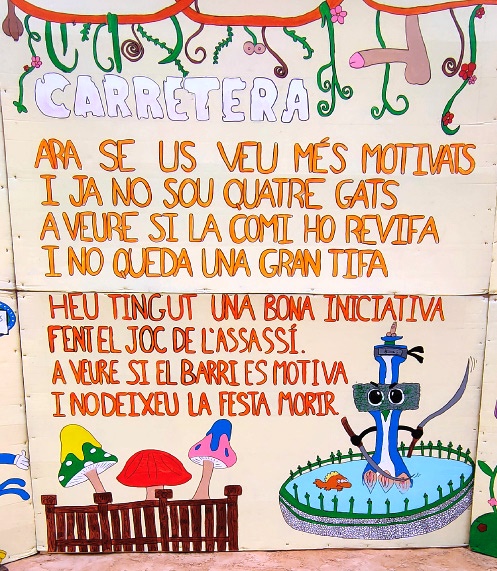 CARRETERA
ARA SE US VEU MÉS MOTIVATS
I JA NO SOU QUATRE GATS
A VEURE SI LA COMI HO REVIFA
I NO QUEDA UNA GRAN TIFA
HEU TINGUT UNA BONA INICIATIVA
FENT EL JOC DE L'ASSASSÍ.
A VEURE SI EL BARRI ES MOTIVA
I NO DEIXEU LA FESTA MORIR